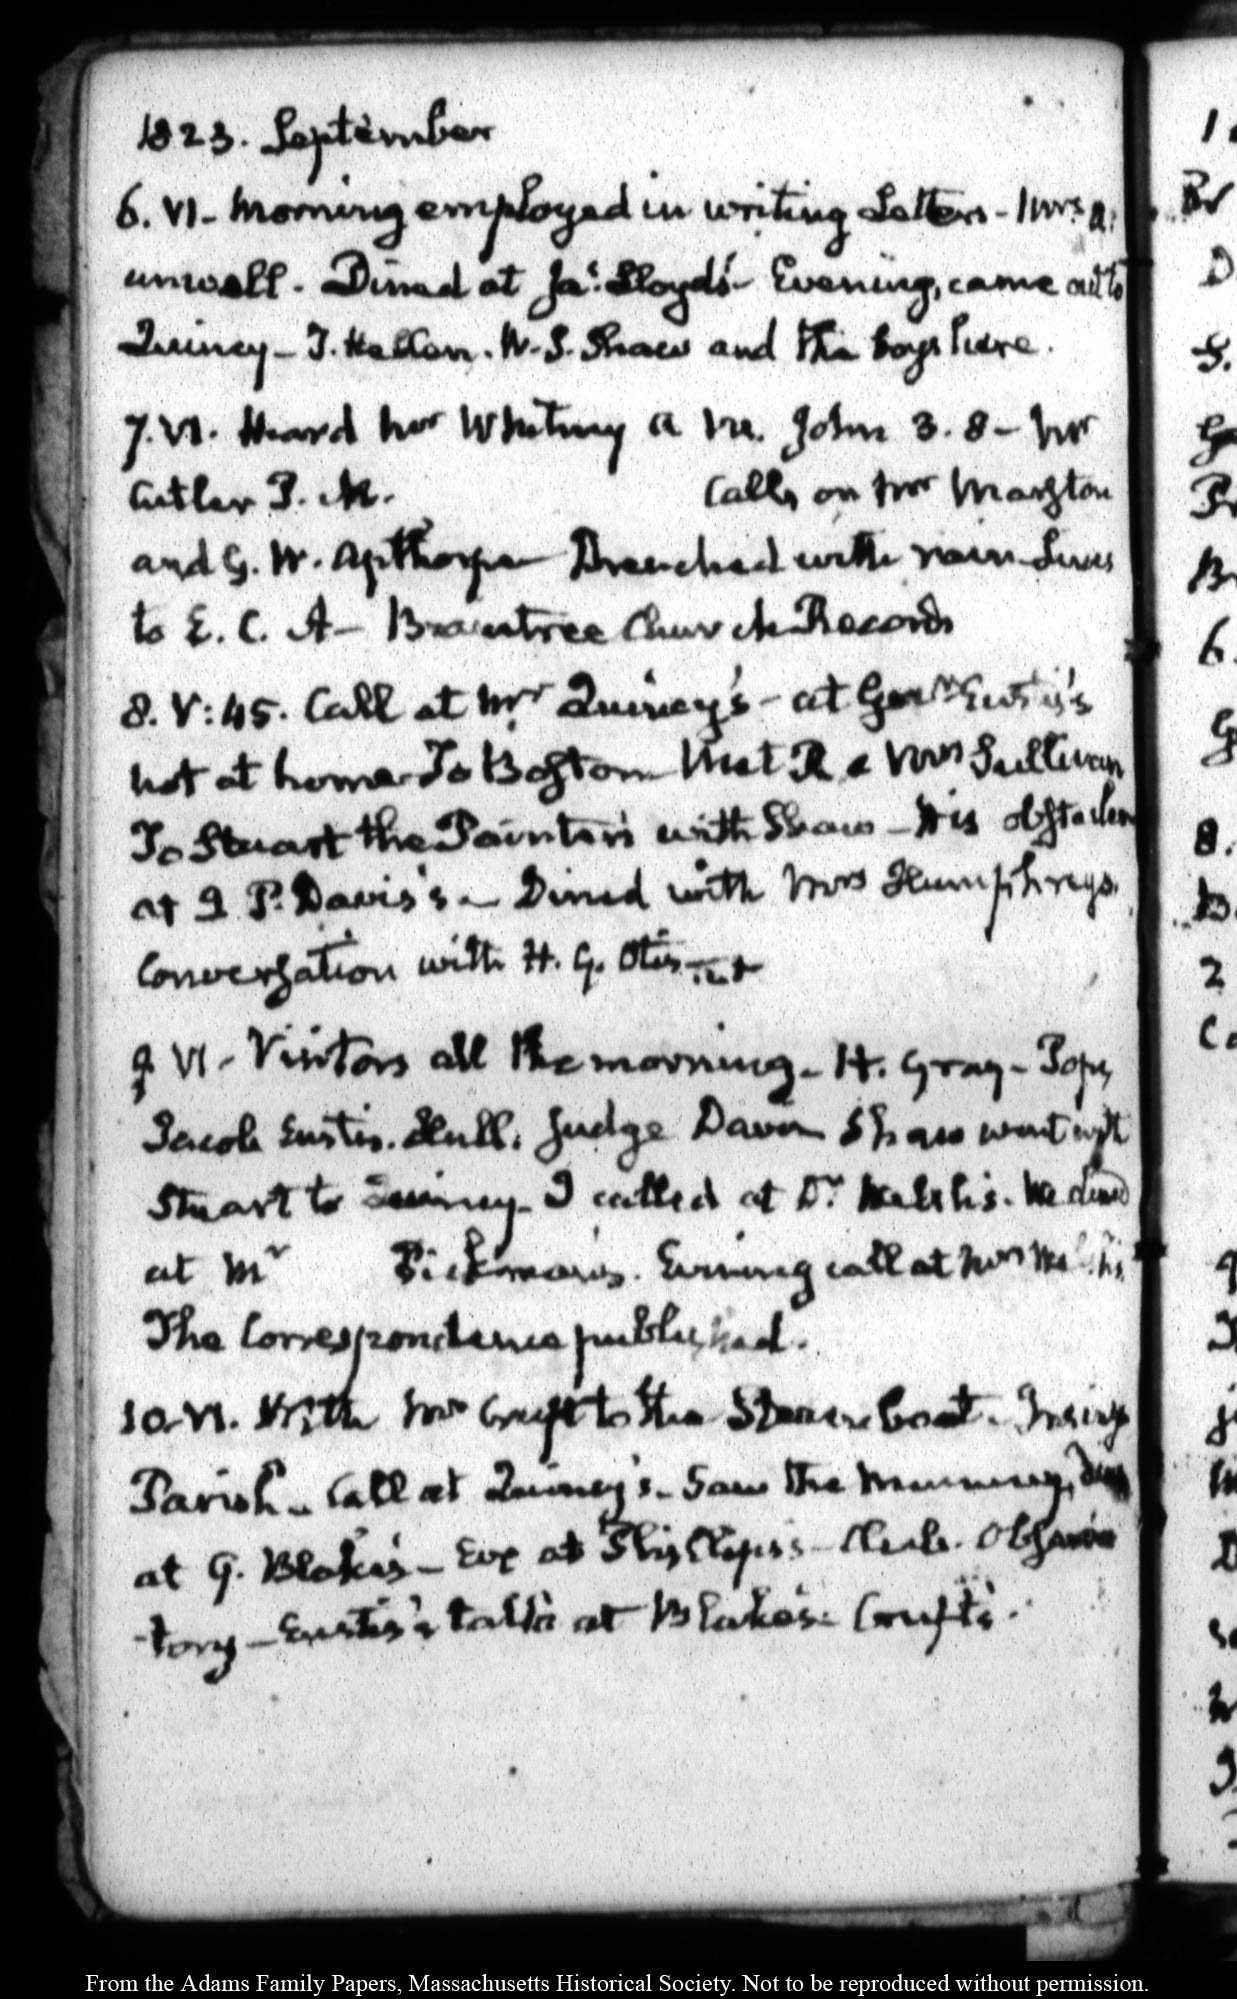 1823. September
6. VI. Morning employed in writing Letters - Mrs. A.
unwell. Dined at Jas. Lloyd's - Evening, came out to
Quincy - T. Hellen. W. S. Shaw and the boys here.
7. VI. Heard Mr Whitney A.M. John 3. 8 - Mr
Cutler P. M. Calls on Mr Marston
and G. W. Apthorp - Drenched with rain - Lines
to E. C. A - Braintree Church Records
8. V:45. Call at Mr Quincy's - at Govr Eustis's
not at home - To Boston - Met R. & Mrs Sullivan
To Stuart the Painter's with Shaw - His obstacles
at I. P. Davis's - Dined with Mrs Humphreys.
Conversation with H. G. Otis
9 VI - Visitors all the morning - H. Gray - Pope
Jacob Eustis. Hull. Judge Davis Shaw went with
Stuart to Quincy - I called at Dr Welsh's. We dined
at Mr Pickman's. Evening call at Mrs
The Correspondence published.
10. VI. With Mr Cruft to the Steam boat -
Parish - Call at Quincy's - Saw the Mummy,
at G. Blake's - Eve at Club. Observa
-tory - Eustis's talk at Blake's - Cruft's.
From the Adams Family Papers, Massachusetts Historical Society. Not to be reproduced without permission.